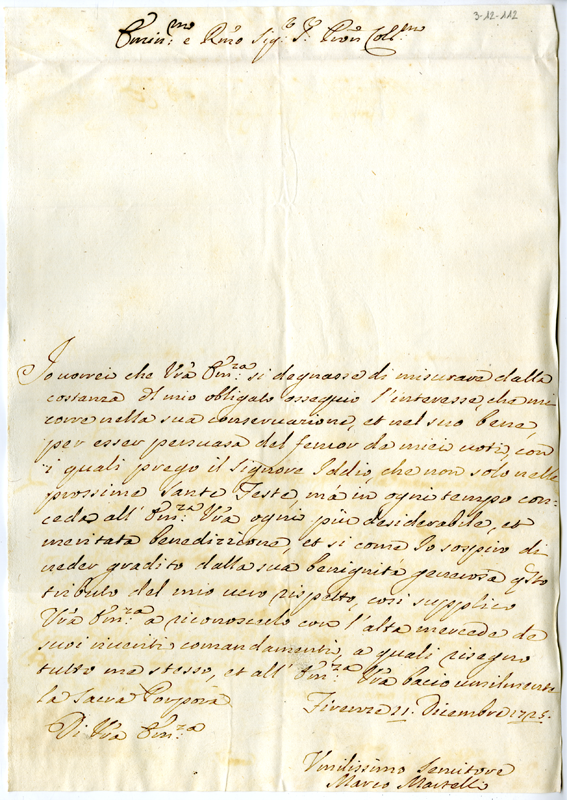 3-12-112
Emin.mo e Rmo Sig.r P.ron Coll.mo
Io vorrei che Vrà Em.za si degnasse di misurare dalla
costanza del mio obligato ossequio l'interesse, che mi
corre nella sua conservazione, et nel suo bene,
per esser persuasa del fervor da miei voti, con
i quali prego il Signore Iddio, che non solo nelle
prossime Sante Feste, mà in ogni tempo con=
ceda all' Em.za Vrà ogni più desiderabile, et
meritata benedizzione, et si come Io sospiro di
veder gradito dalla sua benignità generosa qsto
tributo del mio vero rispetto, così supplico
Vrà Em.za a riconoscerlo con l'alta mercede de
suoi riveriti comandamenti, a quali risegno
tutto me stesso, et all' Em.za Vrà bacio umilmente
la Sacra Porpora.
Firenze 21. Dicembre 1725.
Di Vrà Em.za
Vmilissimo Servitore
Marco Martelli